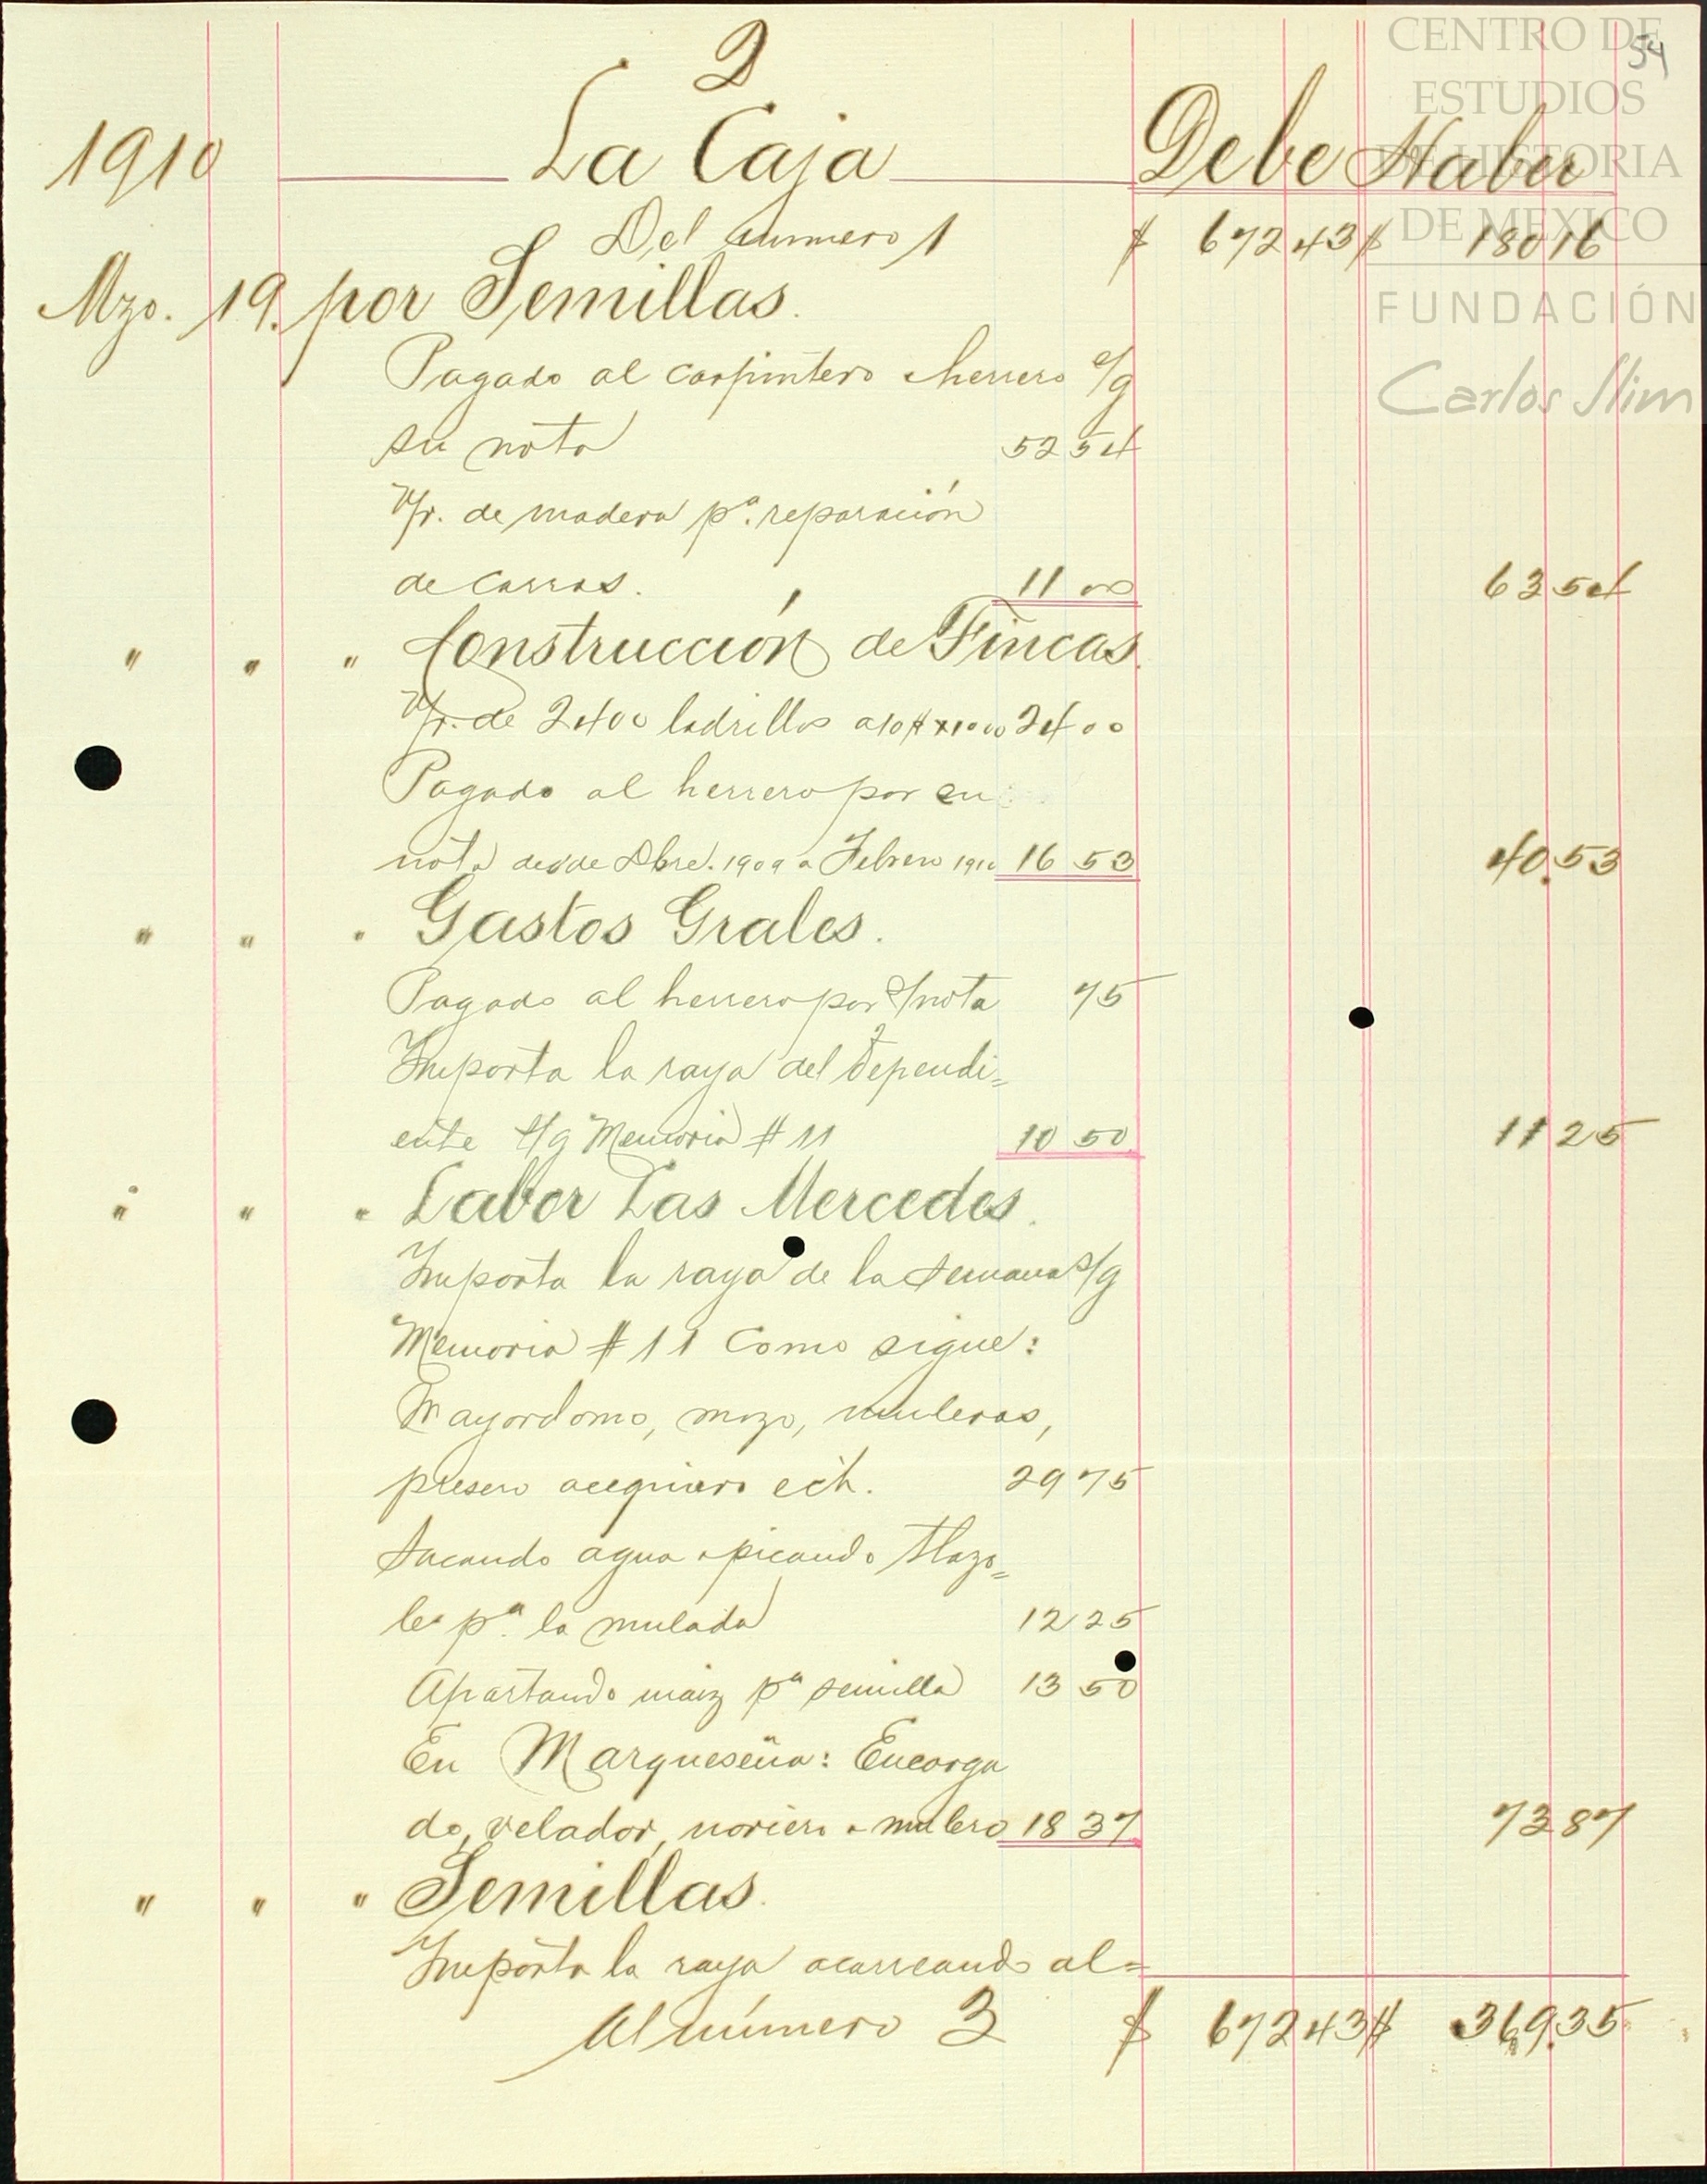 2
54
CENTRO DE
ESTUDIOS
DE HISTORIA
DE MEXICO
FUNDACIÓN
Carlos Slim
1910 La Caja Debe Haber
Del número 1 $ 672 43 $ 180 16
Mzo. 19. por Semillas.
Pagado al carpintero herrero s/g
su nota 52 54
V/r. de madera pª. reparación
de carros. 11 00 63 54
" " " Construcción de Fincas.
V/r. de 2400 ladrillos a 10 $ x 1000 24 00
Pagado al herrero por su
nota desde Dbre. 1909 a Febrero 1910 16 53 40.53
" " " Gastos Grales.
Pagado al herrero por s/nota 75
Importa la raya del Dependi=
ente s/g Memoria # 11 10 50 11 25
" " " Labor Las Mercedes.
Importa la raya de la semana s/g
Memoria # 11 como sigue:
Mayordomo, mozo, muleros,
presero acequiero ect. 29 75
Sacando agua picando tlazo=
le pª la mulada 12 25
Apartando maiz pª semilla 13 50
En Marqueseña: Encarga
do, velador, noriero mulero 18 37 73 87
" " " Semillas.
Importa la raya acarreando al=
Al número 3 $ 672 43 $ 369.35